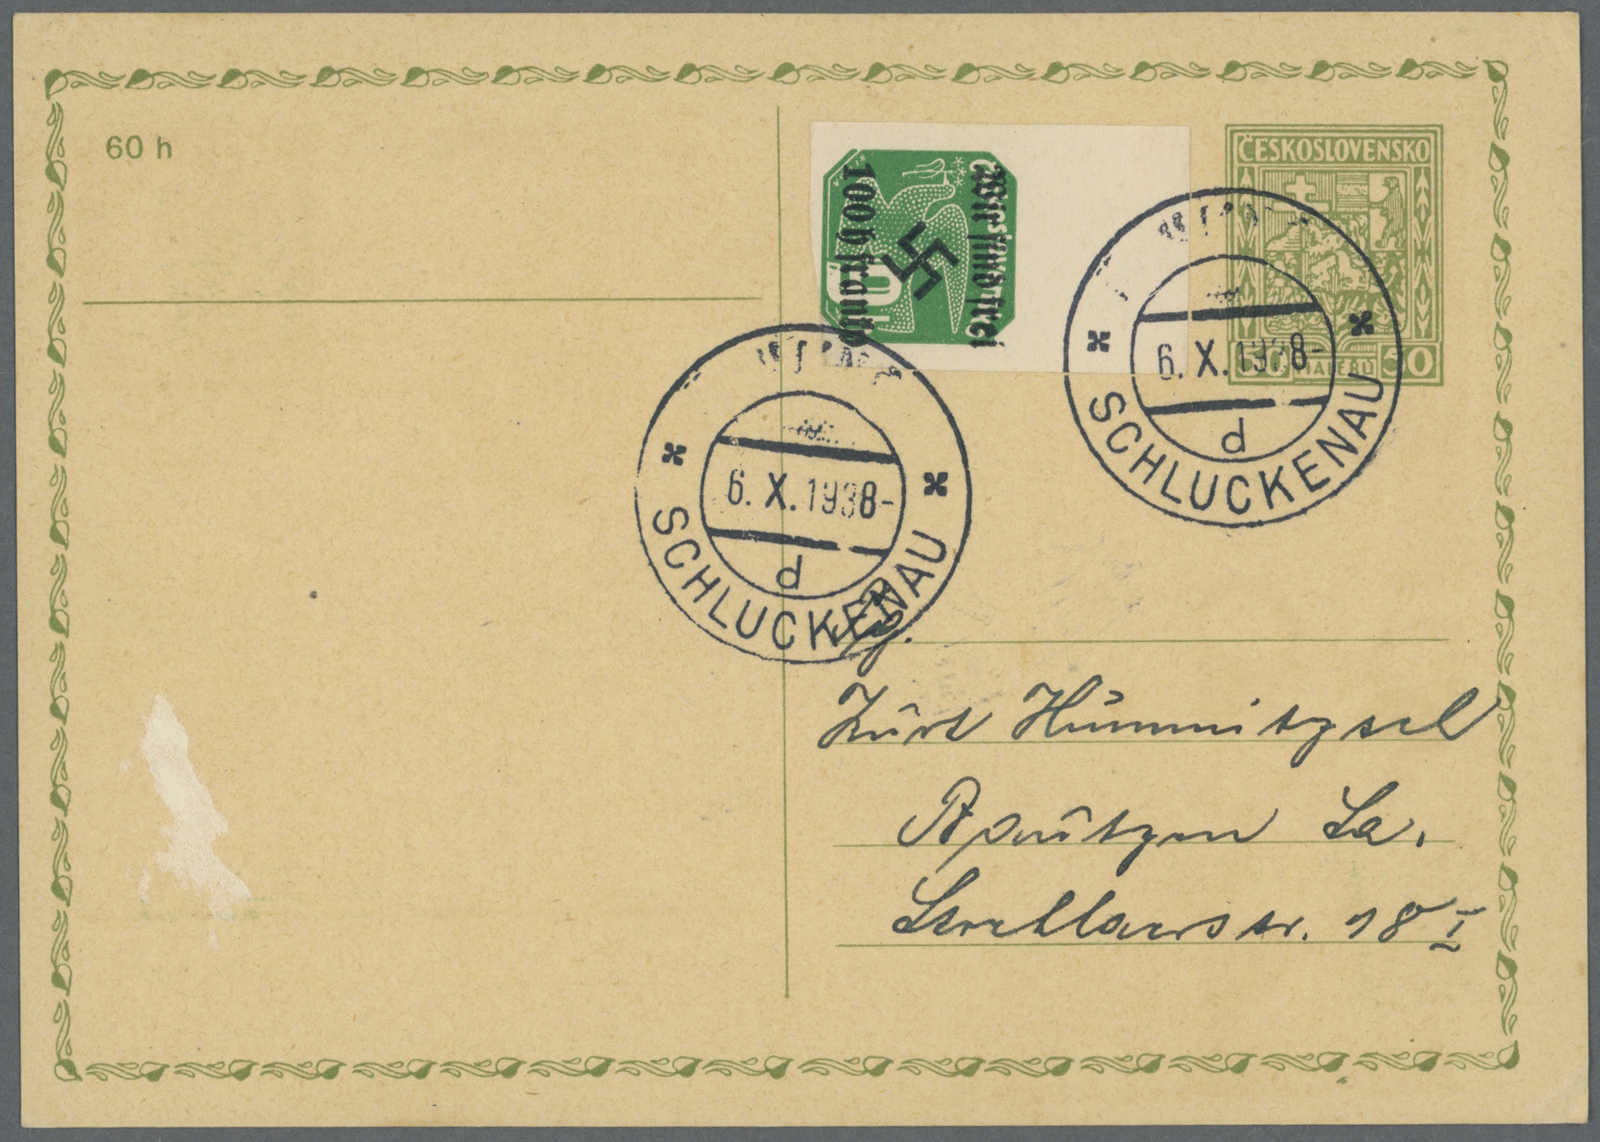 60 h
100 h franko
Wir sind frei
ČESKOSLOVENSKO
50 HALÉŘŮ 50
6. X. 1938-
d
SCHLUCKENAU
6. X. 1938-
d
SCHLUCKENAU
Kurt
Bautzen Sa.
18 I